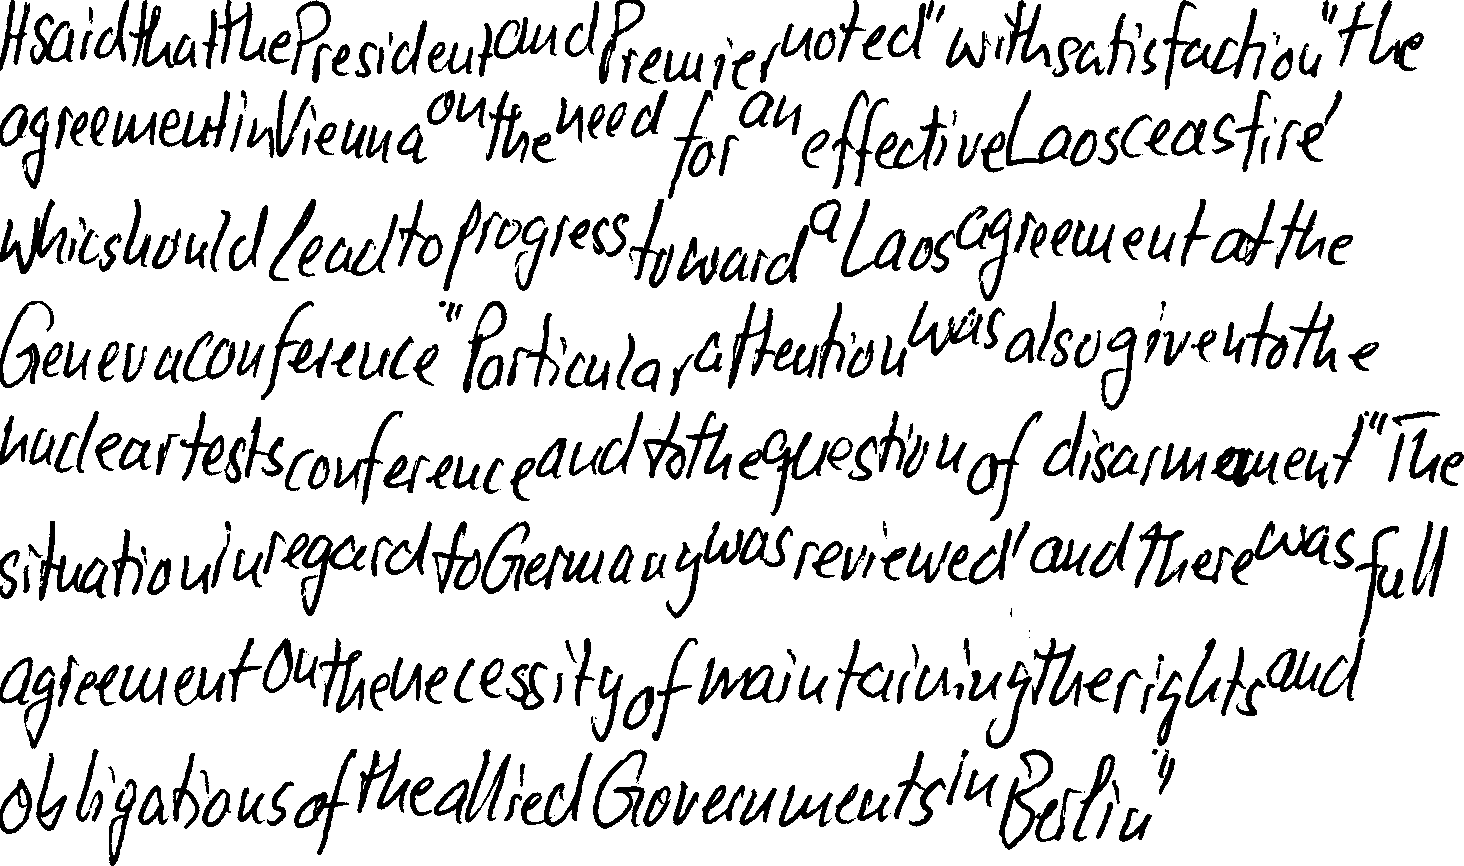 It said that the President and Premier noted "with satisfaction" the
agreement in Vienna on the need for an effective Laos ceasfire'
whic should lead to progress toward a Laos agreement at the
Geneva conference." Particular attention was also given to the
nuclear tests conference and to the question of disarmament." "The
situation in regard to Germany was reviewed' and there was full
agreement on the necessity of maintaining the rights and
obligations of the allied Governments in Berlin."